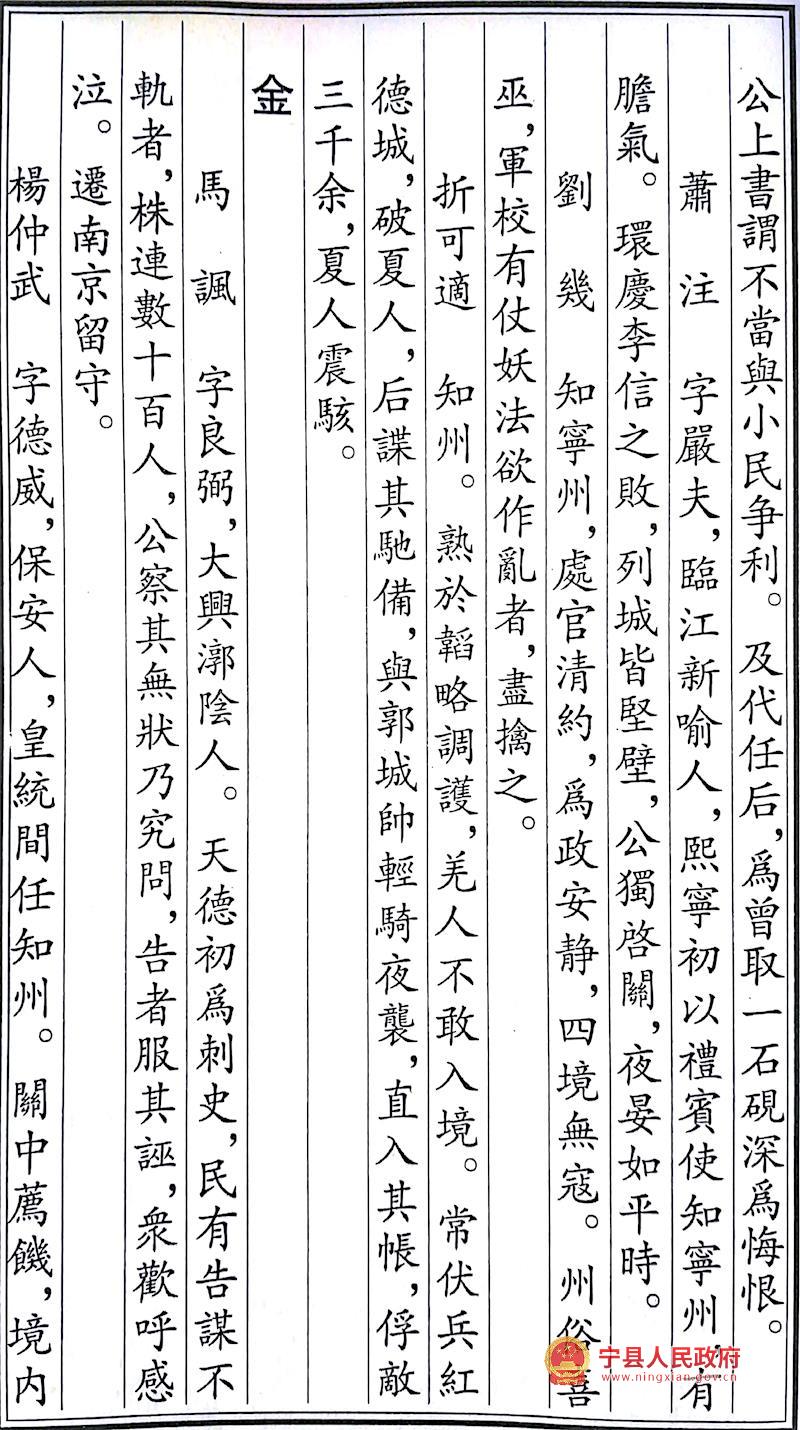 公上書謂不當與小民争利。及代任后，爲曾取一石硯深爲悔恨。
蕭注 字嚴夫，臨江新喻人，熙寧初以禮賓使知寧州，有
膽氣。環慶李信之敗，列城皆堅壁，公獨啓關，夜晏如平時。
劉幾 知寧州，處官清約，爲政安静，四境無寇。州俗喜
巫，軍校有仗妖法欲作亂者，盡擒之。
折可適 知州。熟於韜略調護，羌人不敢入境。常伏兵紅
德城，破夏人，后諜其馳備，與郭城帥輕騎夜襲，直入其帳，俘敵
三千余，夏人震駭。
金
馬諷 字良弼，大興漷陰人。天德初爲刺史，民有告謀不
軌者，株連數十百人，公察其無狀乃究問，告者服其誣，衆歡呼感
泣。遷南京留守。
楊仲武 字德威，保安人，皇統間任知州。關中薦饑，境内
宁县人民政府
www.ningxian.gov.cn